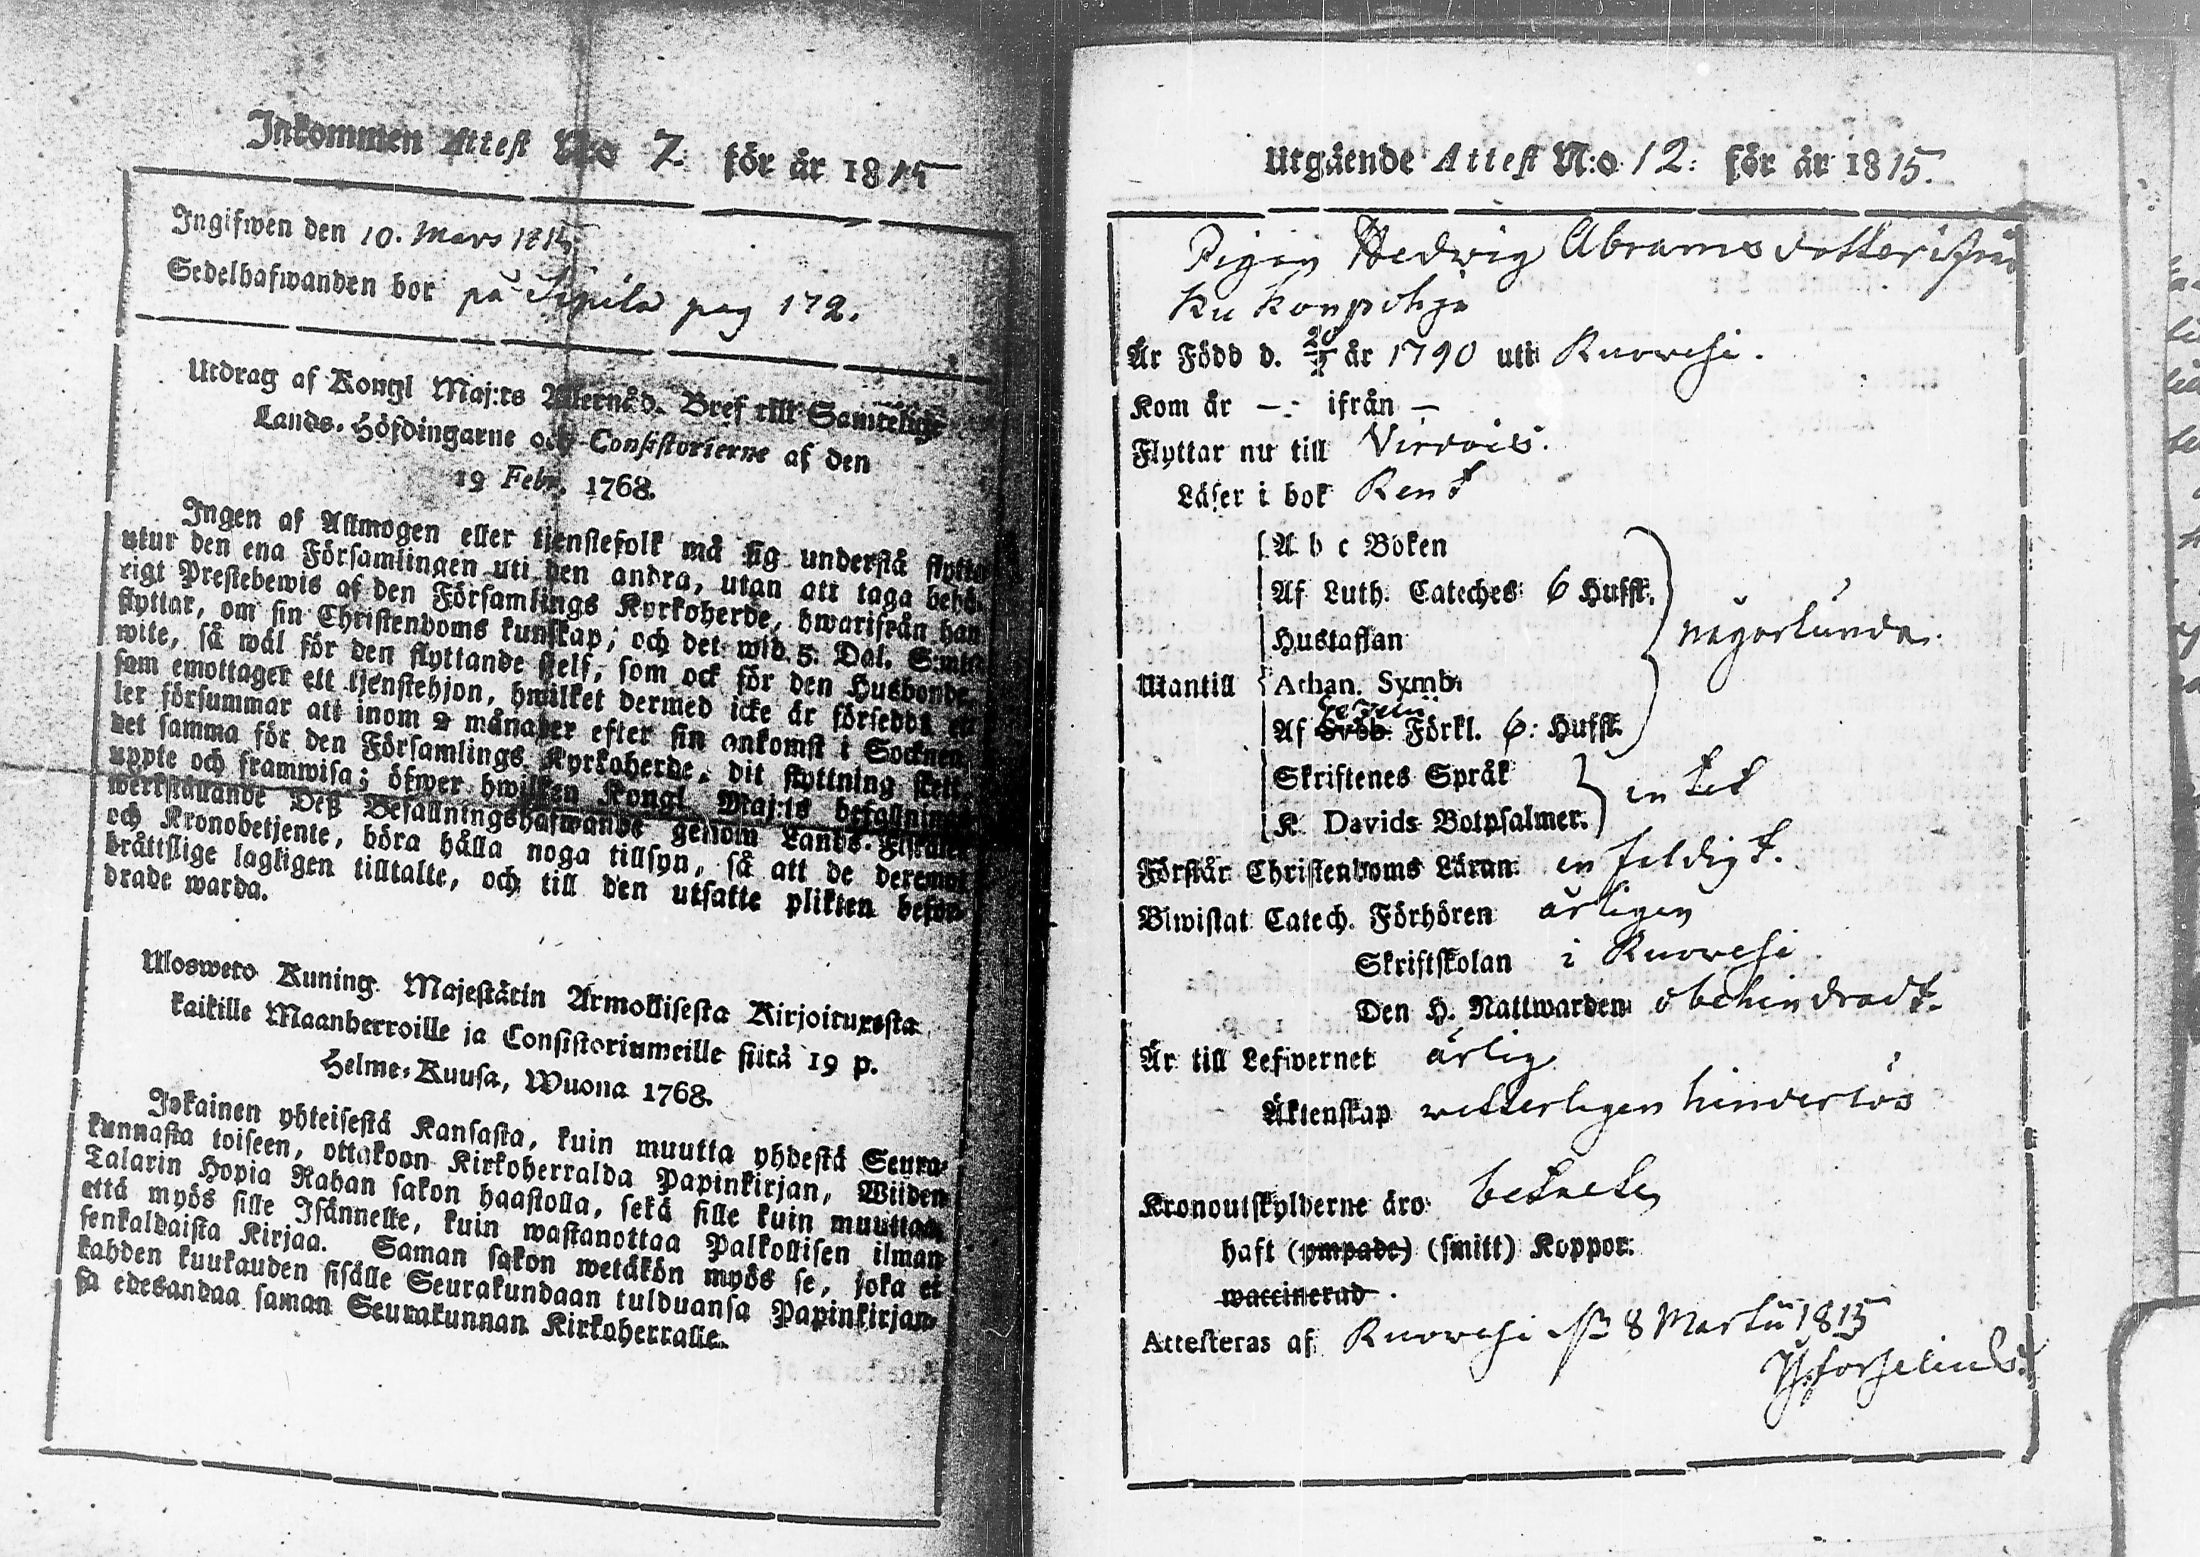 Inkommen Attest No 7. för år 1815
Ingifwen den 10. Mars 1815.
Sedelhafwanden bor på Sipilä pag 172.
Utdrag af Kongl Maj:ts Allernåd. Bref till Samtelige
Lands-Höfdingarne och Consistorierne af den
19 Febr. 1768.
Ingen af Allmogen eller tjenstefolk må sig understå flytta
utur den ena Församlingen uti den andra, utan att taga behö-
rigt Prestebewis af den Församlings Kyrkoherde, hwarifrån han
flyttar, om sin Christendoms kunskap, och det wid 5. Dal. S:mts
wite, så wäl för den flyttande sjelf, som ock för den Husbonde,
som emottager ett tjenstehjon, hwilket dermed icke är försedt, el-
ler försummar att inom 2 månader efter sin ankomst i Socknen
det samma för den Församlings Kyrkoherde, dit flyttning skett,
uppte och framwisa; öfwer hwilken Kongl. Maj:ts befallnings
werkställande Deß Befallningshafwande genom Lands-Fiskaler
och Kronobetjente, böra hålla noga tillsyn, så att de deremot
brättslige lagligen tilltalte, och till den utsatte plikten befor-
drade warda.
Ulosweto Kuning. Majestätin Armollisesta Kirjoituxesta
kaikille Maanherroille ja Consistoriumeille siitä 19 p.
Helme-Kuusa, Wuona 1768.
Jokainen yhteisestä Kansasta, kuin muutta yhdestä Seura-
kunnasta toiseen, ottakoon Kirkoherralda Papinkirjan, Wiiden
Talarin Hopia Rahan sakon haastolla, sekä sille kuin muuttaa,
että myös sille Isännelle, kuin wastanottaa Palkollisen ilman
senkaldaista Kirjaa. Saman sakon wetäkön myös se, joka ei
kahden kuukauden sisälle Seurakundaan tulduansa Papinkirjan-
sa edesandaa saman Seurakunnan Kirkoherralle.
Utgående Attest N:o 12: för år 1815.
Pigan Hedwig Abrams dotter ifrån
Kukonpohja
Är Född d. 20/3 år 1790 uti Ruowesi.
Kom år —. ifrån —
Flyttar nu till Virdois.
Läser i bok Rent
A b c Boken
Af Luth. Cateches 6 Hufst.
Hustaflan
någorlunda.
Utantill Athan. Symb.
Af Svéb. Förkl. 6: Hufst.
Skriftenes Språk
intet
K. Davids Botpsalmer.
Förstår Christendoms Läran enfeldigt.
Biwistat Catech. Förhören årligen
Skriftskolan i Ruowesi
Den H. Nattwarden obehindradt.
Är till Lefwernet ärlig
Äktenskap wetterligen hinderlös
Kronoutskylderne äro betalte
haft (ympade) (smitt) Koppor.
waccinerad.
Attesteras af Ruowesi 8 Martii 1815